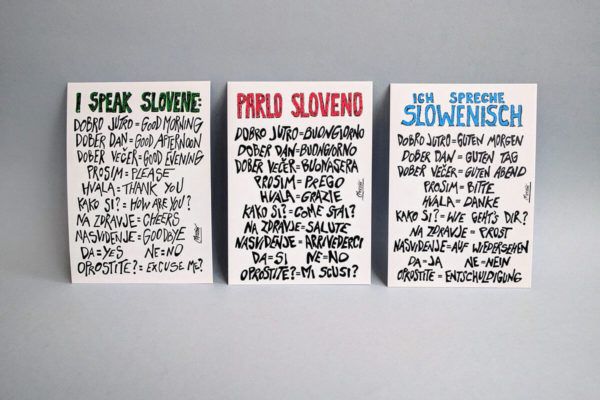 I SPEAK SLOVENE:
DOBRO JUTRO=GOOD MORNING
DOBER DAN=GOOD AFTERNOON
DOBER VEČER=GOOD EVENING
PROSIM=PLEASE
HVALA=THANK YOU
KAKO SI?=HOW ARE YOU?
NA ZDRAVJE=CHEERS
NASVIDENJE=GOODBYE
DA=YES NE=NO
OPROSTITE?=EXCUSE ME?
PARLO SLOVENO
DOBRO JUTRO=BUONGIORNO
DOBER DAN=BUONGIORNO
DOBER VEČER=BUONASERA
PROSIM=PREGO
HVALA=GRAZIE
KAKO SI?=COME STAI?
NA ZDRAVJE=SALUTE
NASVIDENJE=ARRIVEDERCI
DA=SI NE=NO
OPROSTITE?=MI SCUSI?
ICH SPRECHE
SLOWENISCH
DOBRO JUTRO=GUTEN MORGEN
DOBER DAN=GUTEN TAG
DOBER VEČER=GUTEN ABEND
PROSIM=BITTE
HVALA=DANKE
KAKO SI?=WIE GEHT'S DIR?
NA ZDRAVJE=PROST
NASVIDENJE=AUF WIEDERSEHEN
DA=JA NE=NEIN
OPROSTITE=ENTSCHULDIGUNG